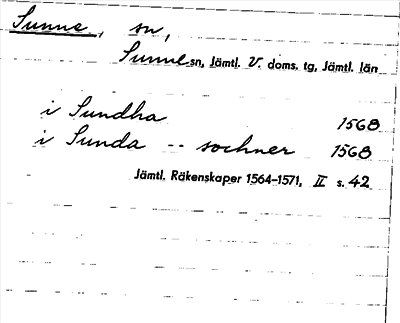 Sunne, sn,
Sunne sn, Jämtl. V. doms. tg, Jämtl. län
i Sundha 1568
i Sunda -- sochner 1568
Jämtl. Räkenskaper 1564-1571, II s. 42